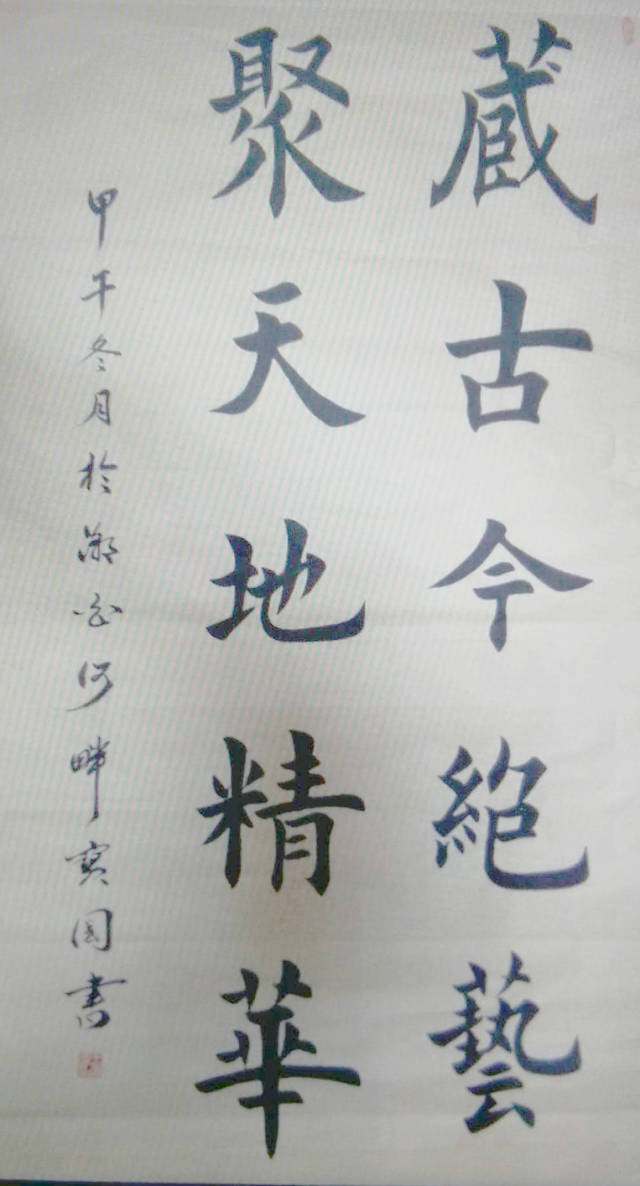 藏古今絕藝
聚天地精華
甲午冬月於潮白河畔寶國書